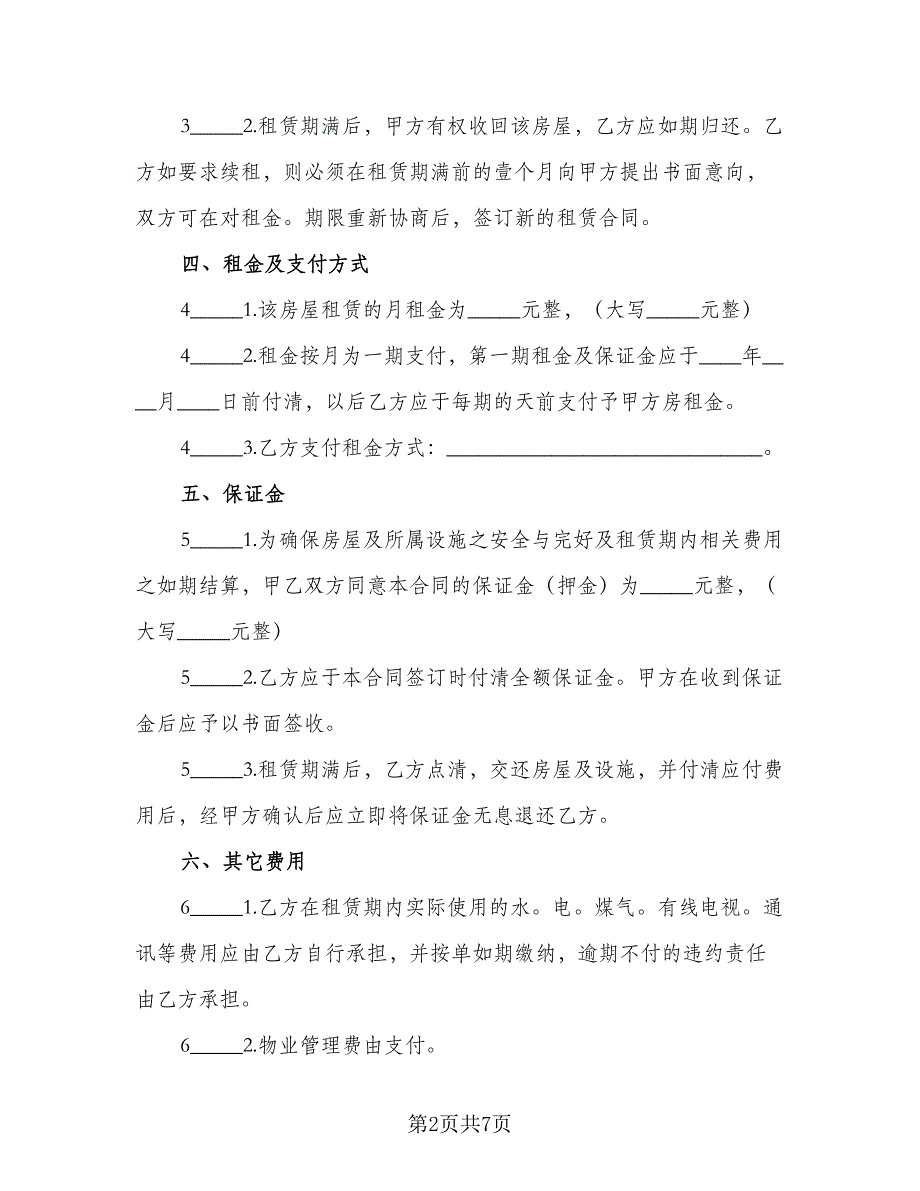 3_____2.租赁期满后，甲方有权收回该房屋，乙方应如期归还。乙
方如要求续租，则必须在租赁期满前的壹个月向甲方提出书面意向，
双方可在对租金。期限重新协商后，签订新的租赁合同。
四、租金及支付方式
4_____1.该房屋租赁的月租金为_____元整，（大写_____元整）
4_____2.租金按月为一期支付，第一期租金及保证金应于____年__
__月____日前付清，以后乙方应于每期的天前支付予甲方房租金。
4_____3.乙方支付租金方式：______________________________。
五、保证金
5_____1.为确保房屋及所属设施之安全与完好及租赁期内相关费用
之如期结算，甲乙双方同意本合同的保证金（押金）为_____元整，（
大写_____元整）
5_____2.乙方应于本合同签订时付清全额保证金。甲方在收到保证
金后应予以书面签收。
5_____3.租赁期满后，乙方点清，交还房屋及设施，并付清应付费
用后，经甲方确认后应立即将保证金无息退还乙方。
六、其它费用
6_____1.乙方在租赁期内实际使用的水。电。煤气。有线电视。通
讯等费用应由乙方自行承担，并按单如期缴纳，逾期不付的违约责任
由乙方承担。
6_____2.物业管理费由支付。
第2页共7页